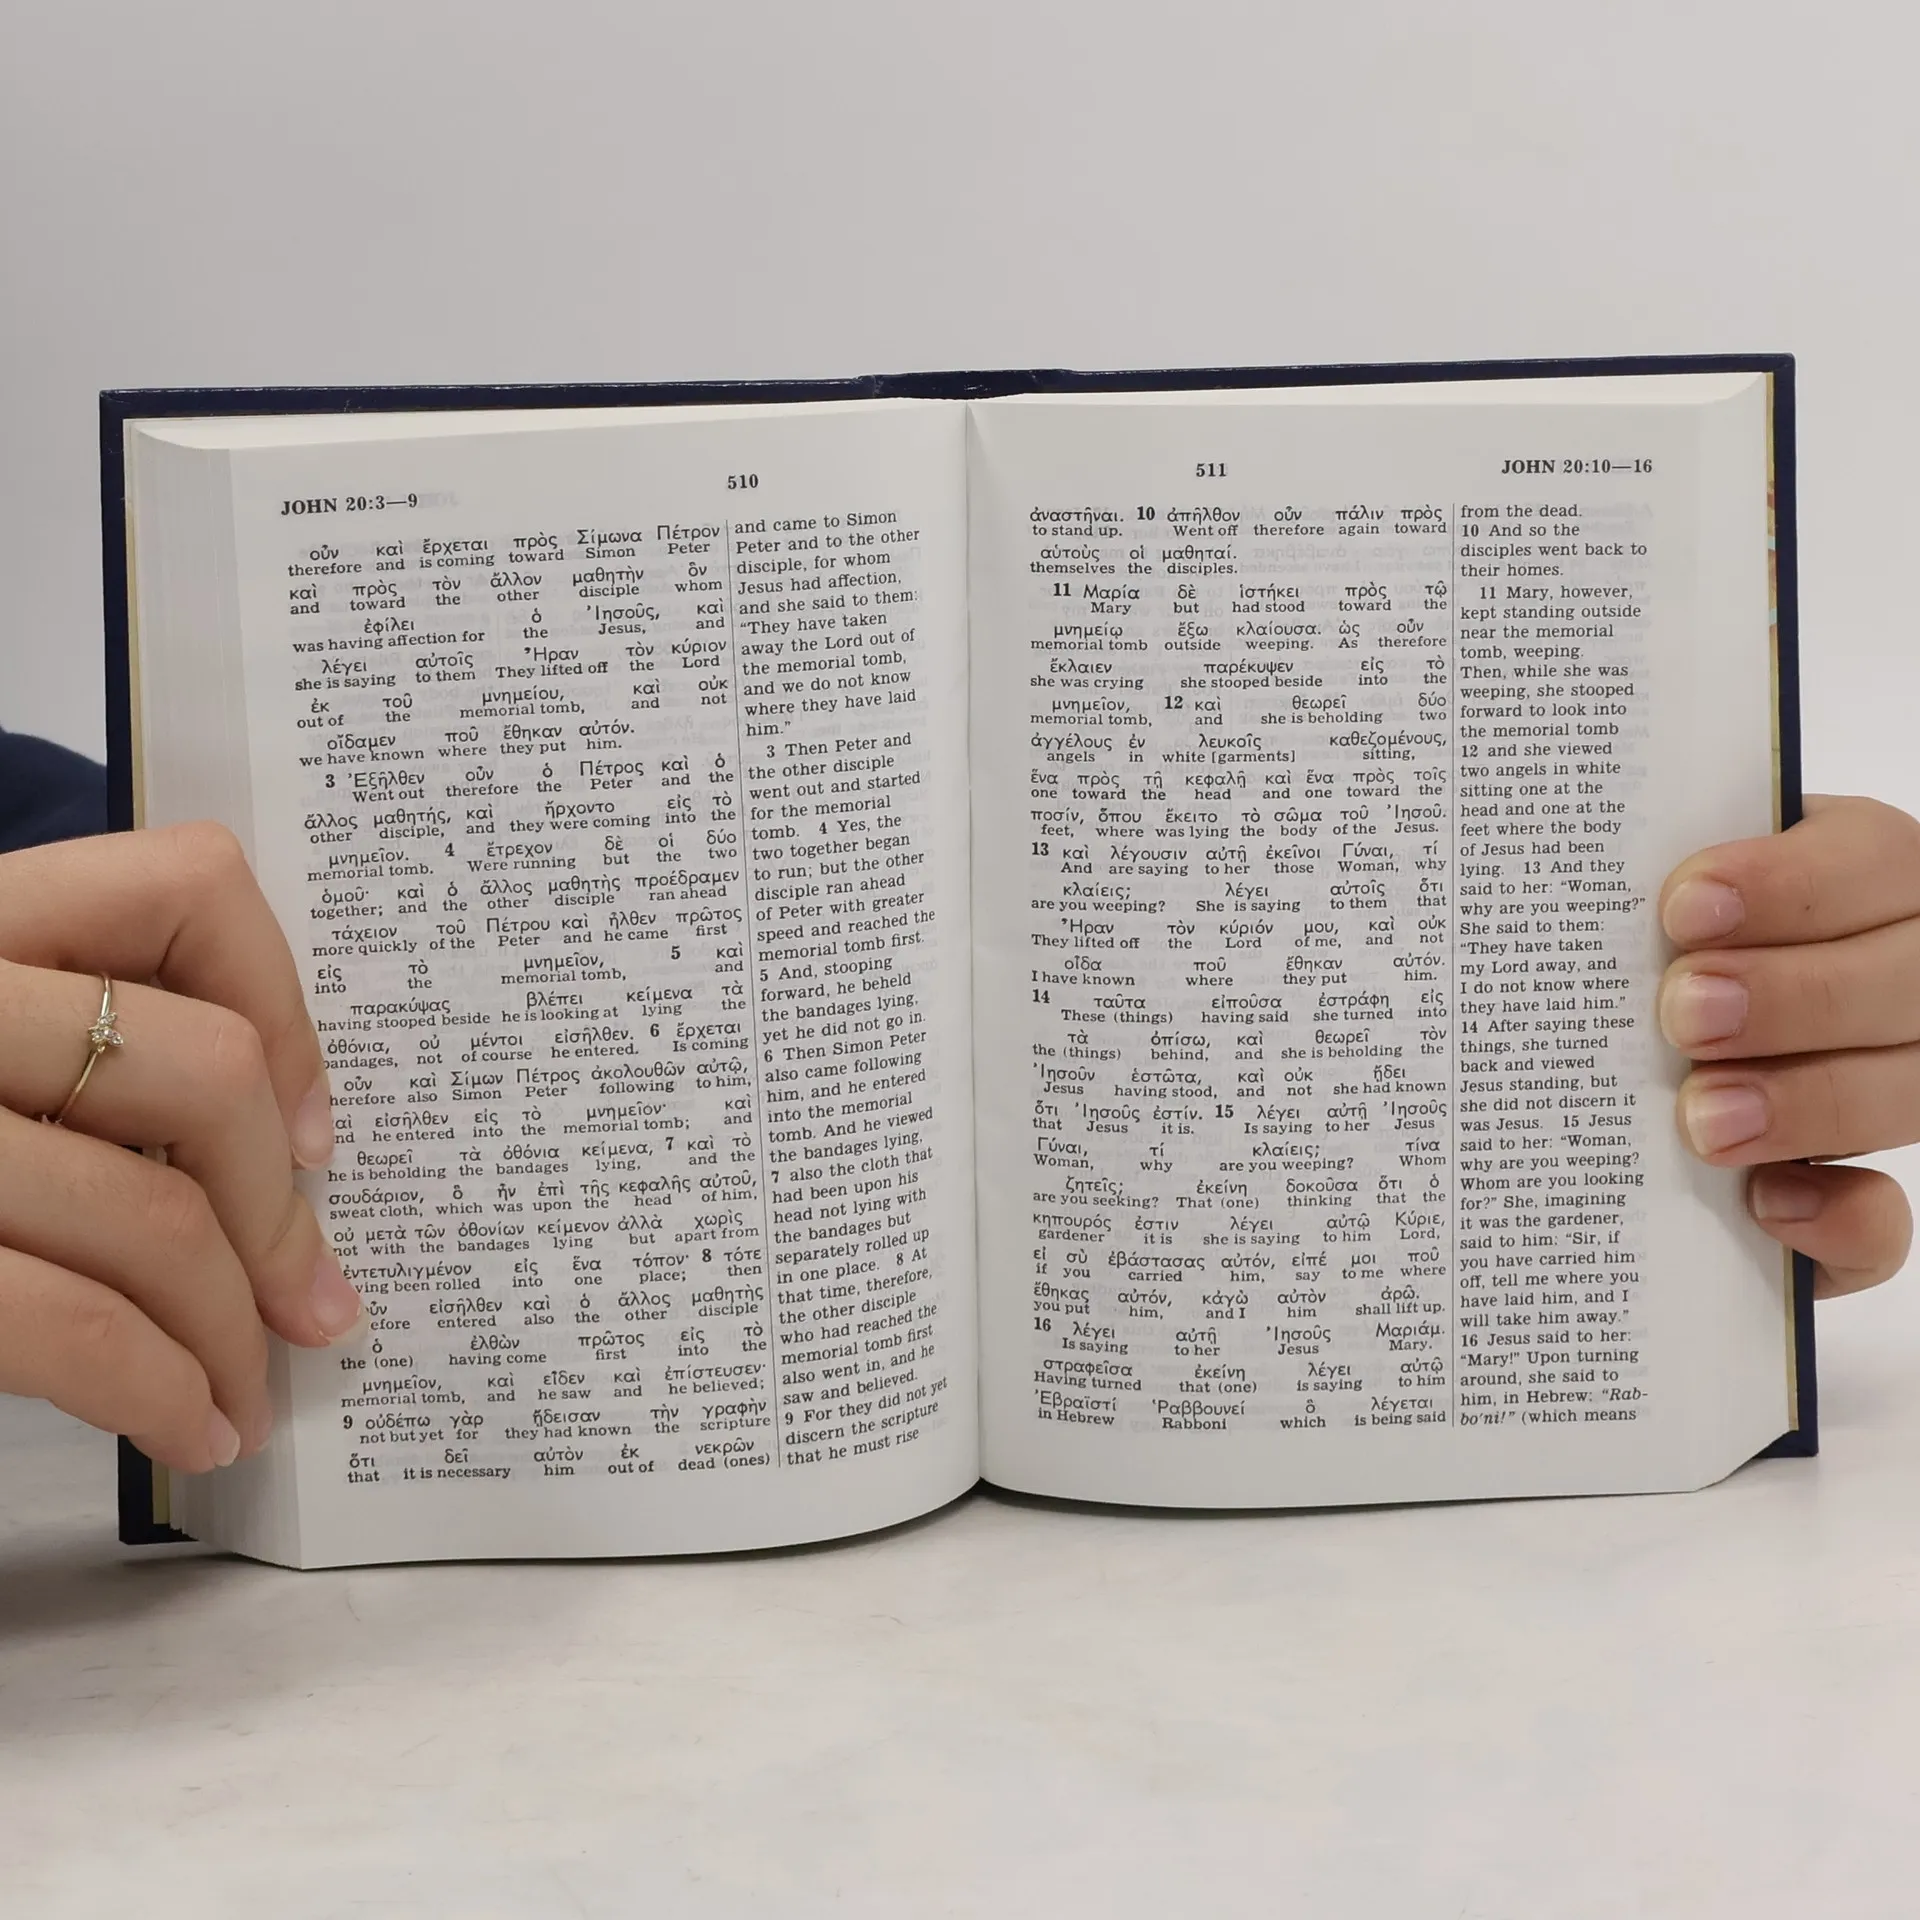 JOHN 20:3—9
510
οὖν καὶ ἔρχεται πρὸς Σίμωνα Πέτρον
therefore and is coming toward Simon Peter
καὶ πρὸς τὸν ἄλλον μαθητὴν ὃν
and toward the other disciple whom
ἐφίλει ὁ Ἰησοῦς, καὶ
was having affection for the Jesus, and
λέγει αὐτοῖς Ἦραν τὸν κύριον
she is saying to them They lifted off the Lord
ἐκ τοῦ μνημείου, καὶ οὐκ
out of the memorial tomb, and not
οἴδαμεν ποῦ ἔθηκαν αὐτόν.
we have known where they put him.
3 Ἐξῆλθεν οὖν ὁ Πέτρος καὶ ὁ
Went out therefore the Peter and the
ἄλλος μαθητής, καὶ ἤρχοντο εἰς τὸ
other disciple, and they were coming into the
μνημεῖον. 4 ἔτρεχον δὲ οἱ δύο
memorial tomb. Were running but the two
ὁμοῦ· καὶ ὁ ἄλλος μαθητὴς προέδραμεν
together; and the other disciple ran ahead
τάχειον τοῦ Πέτρου καὶ ἦλθεν πρῶτος
more quickly of the Peter and he came first
εἰς τὸ μνημεῖον, 5 καὶ
into the memorial tomb, and
παρακύψας βλέπει κείμενα τὰ
having stooped beside he is looking at lying the
ὀθόνια, οὐ μέντοι εἰσῆλθεν. 6 ἔρχεται
bandages, not of course he entered. Is coming
οὖν καὶ Σίμων Πέτρος ἀκολουθῶν αὐτῷ,
herefore also Simon Peter following to him,
αὶ εἰσῆλθεν εἰς τὸ μνημεῖον· καὶ
nd he entered into the memorial tomb; and
θεωρεῖ τὰ ὀθόνια κείμενα, 7 καὶ τὸ
he is beholding the bandages lying, and the
σουδάριον, ὃ ἦν ἐπὶ τῆς κεφαλῆς αὐτοῦ,
sweat cloth, which was upon the head of him,
οὐ μετὰ τῶν ὀθονίων κείμενον ἀλλὰ χωρὶς
not with the bandages lying but apart from
ἐντετυλιγμένον εἰς ἕνα τόπον· 8 τότε
ving been rolled into one place; then
οὖν εἰσῆλθεν καὶ ὁ ἄλλος μαθητὴς
efore entered also the other disciple
ὁ ἐλθὼν πρῶτος εἰς τὸ
the (one) having come first into the
μνημεῖον, καὶ εἶδεν καὶ ἐπίστευσεν·
memorial tomb, and he saw and he believed;
9 οὐδέπω γὰρ ᾔδεισαν τὴν γραφὴν
not but yet for they had known the scripture
ὅτι δεῖ αὐτὸν ἐκ νεκρῶν
that it is necessary him out of dead (ones)
and came to Simon
Peter and to the other
disciple, for whom
Jesus had affection,
and she said to them:
“They have taken
away the Lord out of
the memorial tomb,
and we do not know
where they have laid
him.”
3 Then Peter and
the other disciple
went out and started
for the memorial
tomb. 4 Yes, the
two together began
to run; but the other
disciple ran ahead
of Peter with greater
speed and reached the
memorial tomb first.
5 And, stooping
forward, he beheld
the bandages lying,
yet he did not go in.
6 Then Simon Peter
also came following
him, and he entered
into the memorial
tomb. And he viewed
the bandages lying,
7 also the cloth that
had been upon his
head not lying with
the bandages but
separately rolled up
in one place. 8 At
that time, therefore,
the other disciple
who had reached the
memorial tomb first
also went in, and he
saw and believed.
9 For they did not yet
discern the scripture
that he must rise
511
JOHN 20:10—16
ἀναστῆναι. 10 ἀπῆλθον οὖν πάλιν πρὸς
to stand up. Went off therefore again toward
αὑτοὺς οἱ μαθηταί.
themselves the disciples.
11 Μαρία δὲ ἱστήκει πρὸς τῷ
Mary but had stood toward the
μνημείῳ ἔξω κλαίουσα. ὡς οὖν
memorial tomb outside weeping. As therefore
ἔκλαιεν παρέκυψεν εἰς τὸ
she was crying she stooped beside into the
μνημεῖον, 12 καὶ θεωρεῖ δύο
memorial tomb, and she is beholding two
ἀγγέλους ἐν λευκοῖς καθεζομένους,
angels in white [garments] sitting,
ἕνα πρὸς τῇ κεφαλῇ καὶ ἕνα πρὸς τοῖς
one toward the head and one toward the
ποσίν, ὅπου ἔκειτο τὸ σῶμα τοῦ Ἰησοῦ.
feet, where was lying the body of the Jesus.
13 καὶ λέγουσιν αὐτῇ ἐκεῖνοι Γύναι, τί
And are saying to her those Woman, why
κλαίεις; λέγει αὐτοῖς ὅτι
are you weeping? She is saying to them that
Ἦραν τὸν κύριόν μου, καὶ οὐκ
They lifted off the Lord of me, and not
οἶδα ποῦ ἔθηκαν αὐτόν.
I have known where they put him.
14 ταῦτα εἰποῦσα ἐστράφη εἰς
These (things) having said she turned into
τὰ ὀπίσω, καὶ θεωρεῖ τὸν
the (things) behind, and she is beholding the
Ἰησοῦν ἑστῶτα, καὶ οὐκ ᾔδει
Jesus having stood, and not she had known
ὅτι Ἰησοῦς ἐστίν. 15 λέγει αὐτῇ Ἰησοῦς
that Jesus it is. Is saying to her Jesus
Γύναι, τί κλαίεις; τίνα
Woman, why are you weeping? Whom
ζητεῖς; ἐκείνη δοκοῦσα ὅτι ὁ
are you seeking? That (one) thinking that the
κηπουρός ἐστιν λέγει αὐτῷ Κύριε,
gardener it is she is saying to him Lord,
εἰ σὺ ἐβάστασας αὐτόν, εἰπέ μοι ποῦ
if you carried him, say to me where
ἔθηκας αὐτόν, κἀγὼ αὐτὸν ἀρῶ.
you put him, and I him shall lift up.
16 λέγει αὐτῇ Ἰησοῦς Μαριάμ.
Is saying to her Jesus Mary.
στραφεῖσα ἐκείνη λέγει αὐτῷ
Having turned that (one) is saying to him
Ἑβραϊστί Ῥαββουνεί ὃ λέγεται
in Hebrew Rabboni which is being said
from the dead.
10 And so the
disciples went back to
their homes.
11 Mary, however,
kept standing outside
near the memorial
tomb, weeping.
Then, while she was
weeping, she stooped
forward to look into
the memorial tomb
12 and she viewed
two angels in white
sitting one at the
head and one at the
feet where the body
of Jesus had been
lying. 13 And they
said to her: “Woman,
why are you weeping?”
She said to them:
“They have taken
my Lord away, and
I do not know where
they have laid him.”
14 After saying these
things, she turned
back and viewed
Jesus standing, but
she did not discern it
was Jesus. 15 Jesus
said to her: “Woman,
why are you weeping?
Whom are you looking
for?” She, imagining
it was the gardener,
said to him: “Sir, if
you have carried him
off, tell me where you
have laid him, and I
will take him away.”
16 Jesus said to her:
“Mary!” Upon turning
around, she said to
him, in Hebrew: “Rab-
bo′ni!” (which means